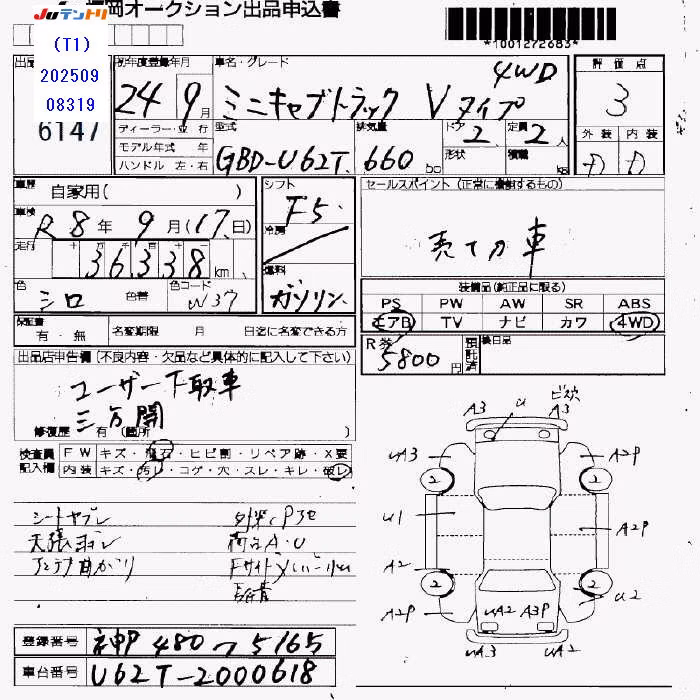 JUテントリ
福岡オークション出品申込書
*1001272683*
(T1)
202509
08319
6147
初年度登録年月
24 9月
車名・グレード
4WD
ミニキャブトラック Vタイプ
評価点
3
外装 内装
D D
ディーラー・並行
モデル年式 年
ハンドル 左・右
型式
GBD-U62T
排気量
660
ドア 2
形状
定員 2人
積載 kg
車歴
自家用( )
車検
R8年 9月(17日)
走行
36338km
色
シロ
色替
色コード
W37
シフト
F5
冷房
燃料
ガソリン
セールスポイント (正常に機能するもの)
売て刀車
装備品(純正品に限る)
PS PW AW SR ABS
エアB TV ナビ カワ 4WD
有・無
名変期限 月 日迄に名変できる方
R券
5800円
預託済
後日品
出品店申告欄 (不良内容・欠品など具体的に記入して下さい)
ユーザー下取車
三方開
修復歴 有 (箇所 )
検査員記入欄
FW キズ・飛石・ヒビ割・リペア跡・X要
内装 キズ・汚レ・コゲ・穴・スレ・キレ・破レ
シートヤブレ
天張ヨゴレ
アンテナ曲がり
荷台A・U
A3 u ビス穴 A3
uA3 2 2 A2P
u1 A2P
A2 2 2 u2
A2P uA2 A3P
uA3 uA2
登録番号 神戸 480 つ 5165
車台番号 U62T-2000618